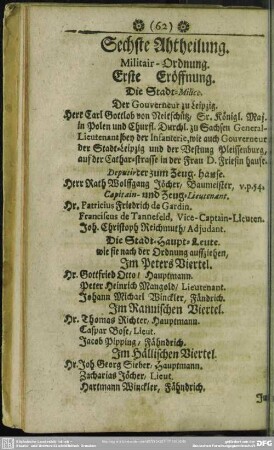 (62)
Sechste Abtheilung.
Militair-Ordnung.
Erste Eröffnung.
Die Stadt-Milice.
Der Gouverneur zu Leipzig.
Herr Carl Gottlob von Neitschütz, Sr. Königl. Maj.
in Polen und Churfl. Durchl. zu Sachsen General-
Lieutenant bey der Infanterie, wie auch Gouverneur
der Stadt-Leipzig und der Vestung Pleissenburg,
auf der Cathar-strasse in der Frau D. Friesin hause.
Deputirter zum Zeug-hause.
Herr Rath Wolffgang Jöcher, Baumeister, v.p.54.
Capitain- und Zeug-Lieutenant.
Hr. Patricius Friedrich de Gardin.
Franciscus de Tannefeld, Vice-Captain-Lieuten.
Joh. Christoph Reichmuth, Adjutant.
Die Stadt-Haupt-Leute.
wie sie nach der Ordnung auffziehen,
Im Peters Viertel.
Hr. Gottfried Otto, Hauptmann.
Peter Heinrich Mangold, Lieutenant.
Johann Michael Winckler, Fändrich.
Im Rannischen Viertel.
Hr. Thomas Richter, Hauptmann.
Caspar Bose, Lieut.
Jacob Pipping, Fähndrich.
Im Hällischen Viertel.
Hr. Joh Georg Sieber, Hauptmann.
Zacharias Jöcher, Lieut.
Hartmann Winckler, Fähndrich.